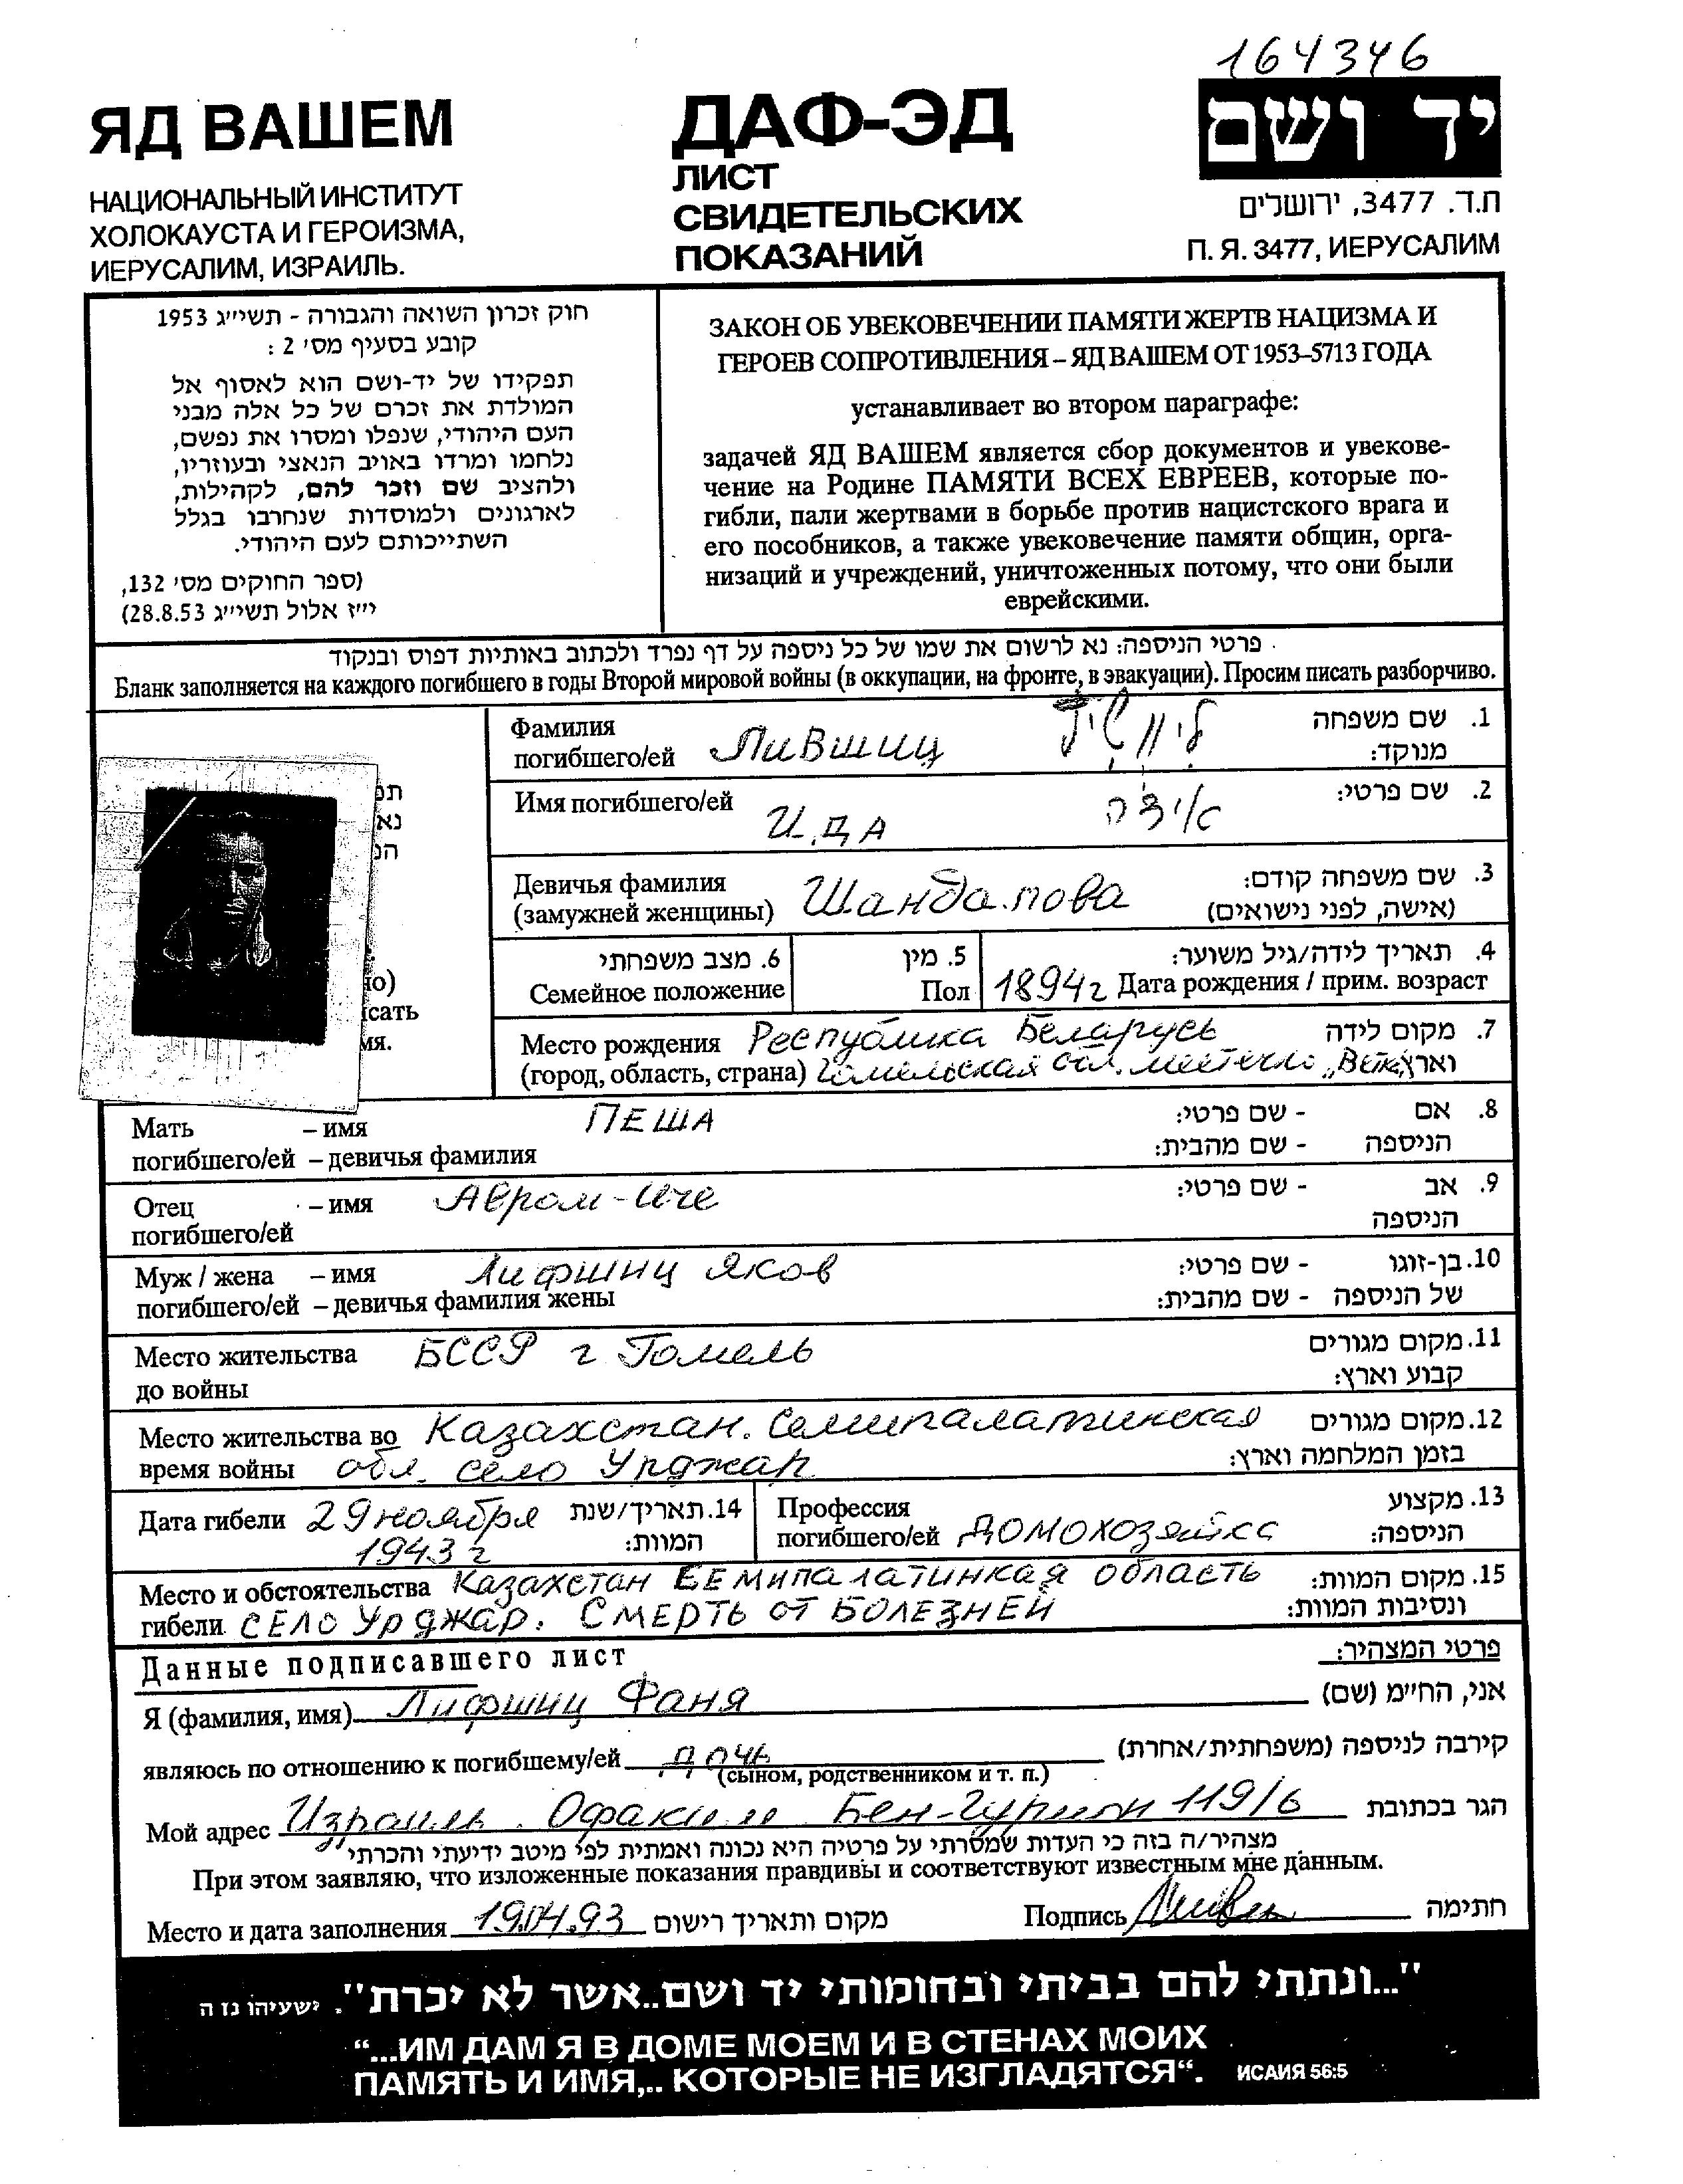 164346
ЯД ВАШЕМ
НАЦИОНАЛЬНЫЙ ИНСТИТУТ
ХОЛОКАУСТА И ГЕРОИЗМА,
ИЕРУСАЛИМ, ИЗРАИЛЬ.
ДАФ-ЭД
ЛИСТ
СВИДЕТЕЛЬСКИХ
ПОКАЗАНИЙ
יד ושם
ת.ד. 3477, ירושלים
П. Я. 3477, ИЕРУСАЛИМ
חוק זכרון השואה והגבורה - תשי״ג 1953
קובע בסעיף מס׳ 2 :
תפקידו של יד-ושם הוא לאסוף אל
המולדת את זכרם של כל אלה מבני
העם היהודי, שנפלו ומסרו את נפשם,
נלחמו ומרדו באויב הנאצי ובעוזריו,
ולהציב שם וזכר להם, לקהילות,
לארגונים ולמוסדות שנחרבו בגלל
השתייכותם לעם היהודי.
(ספר החוקים מס׳ 132,
י״ז אלול תשי״ג 28.8.53)
ЗАКОН ОБ УВЕКОВЕЧЕНИИ ПАМЯТИ ЖЕРТВ НАЦИЗМА И
ГЕРОЕВ СОПРОТИВЛЕНИЯ – ЯД ВАШЕМ ОТ 1953–5713 ГОДА
устанавливает во втором параграфе:
задачей ЯД ВАШЕМ является сбор документов и увекове-
чение на Родине ПАМЯТИ ВСЕХ ЕВРЕЕВ, которые по-
гибли, пали жертвами в борьбе против нацистского врага и
его пособников, а также увековечение памяти общин, орга-
низаций и учреждений, уничтоженных потому, что они были
еврейскими.
פרטי הניספה: נא לרשום את שמו של כל ניספה על דף נפרד ולכתוב באותיות דפוס ובנקוד
Бланк заполняется на каждого погибшего в годы Второй мировой войны (в оккупации, на фронте, в эвакуации). Просим писать разборчиво.
Фамилия
погибшего/ей Лившиц
1. שם משפחה
מנוקד:
Имя погибшего/ей ИДА אידה 2. שם פרטי:
Девичья фамилия 3. שם משפחה קודם:
(замужней женщины) Шандалова (אישה, לפני נישואים)
6. מצב משפחתי 5. מין 4. תאריך לידה/גיל משוער:
Семейное положение Пол 1894г Дата рождения / прим. возраст
Место рождения Республика Беларусь 7. מקום לידה
(город, область, страна) Гомельская обл. местечко „Ветка“ וארץ
но)
исать
мя.
Мать – имя ПЕША 8. אם - שם פרטי:
погибшего/ей – девичья фамилия הניספה - שם מהבית:
Отец – имя Авром-Иче 9. אב - שם פרטי:
погибшего/ей הניספה
Муж / жена – имя Лифшиц Яков 10. בן-זוגו - שם פרטי:
погибшего/ей – девичья фамилия жены של הניספה - שם מהבית:
Место жительства БССР г Гомель 11. מקום מגורים
до войны קבוע וארץ:
Место жительства во Казахстан. Семипалатинская 12. מקום מגורים
время войны обл. село Урджар בזמן המלחמה וארץ:
Дата гибели 29 ноября 14. תאריך/שנת
1943 г המוות:
Профессия 13. מקצוע
погибшего/ей ДОМОХОЗЯЙКА הניספה:
Место и обстоятельства КАЗАХСТАН СЕМИПАЛАТИНКАЯ ОБЛАСТЬ 15. מקום המוות:
гибели СЕЛО УРДЖАР. СМЕРТЬ ОТ БОЛЕЗНЕЙ ונסיבות המוות:
Данные подписавшего лист פרטי המצהיר:
Я (фамилия, имя) Лифшиц Фаня אני, החי״מ (שם)
являюсь по отношению к погибшему/ей дочь קירבה לניספה (משפחתית/אחרת)
(сыном, родственником и т. п.)
Мой адрес Израиль. Офаким Бен-Гурион 119/6 הגר בכתובת
מצהיר/ה בזה כי העדות שמסרתי על פרטיה היא נכונה ואמתית לפי מיטב ידיעתי והכרתי
При этом заявляю, что изложенные показания правдивы и соответствуют известным мне данным.
Место и дата заполнения 19.04.93 מקום ותאריך רישום Подпись חתימה
"...ונתתי להם בביתי ובחומותי יד ושם..אשר לא יכרת". ישעיהו נז ה
“...ИМ ДАМ Я В ДОМЕ МОЕМ И В СТЕНАХ МОИХ
ПАМЯТЬ И ИМЯ,.. КОТОРЫЕ НЕ ИЗГЛАДЯТСЯ“. ИСАИЯ 56:5